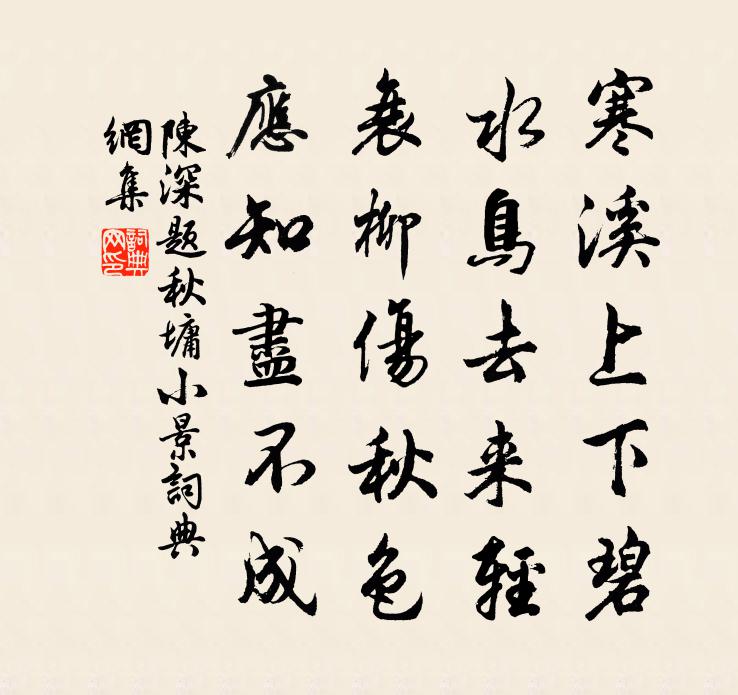 寒溪上下碧
水鳥去来輕
衰柳傷秋色
應知盡不成
陳深題秋墉小景詞典
網集
詞典
网印